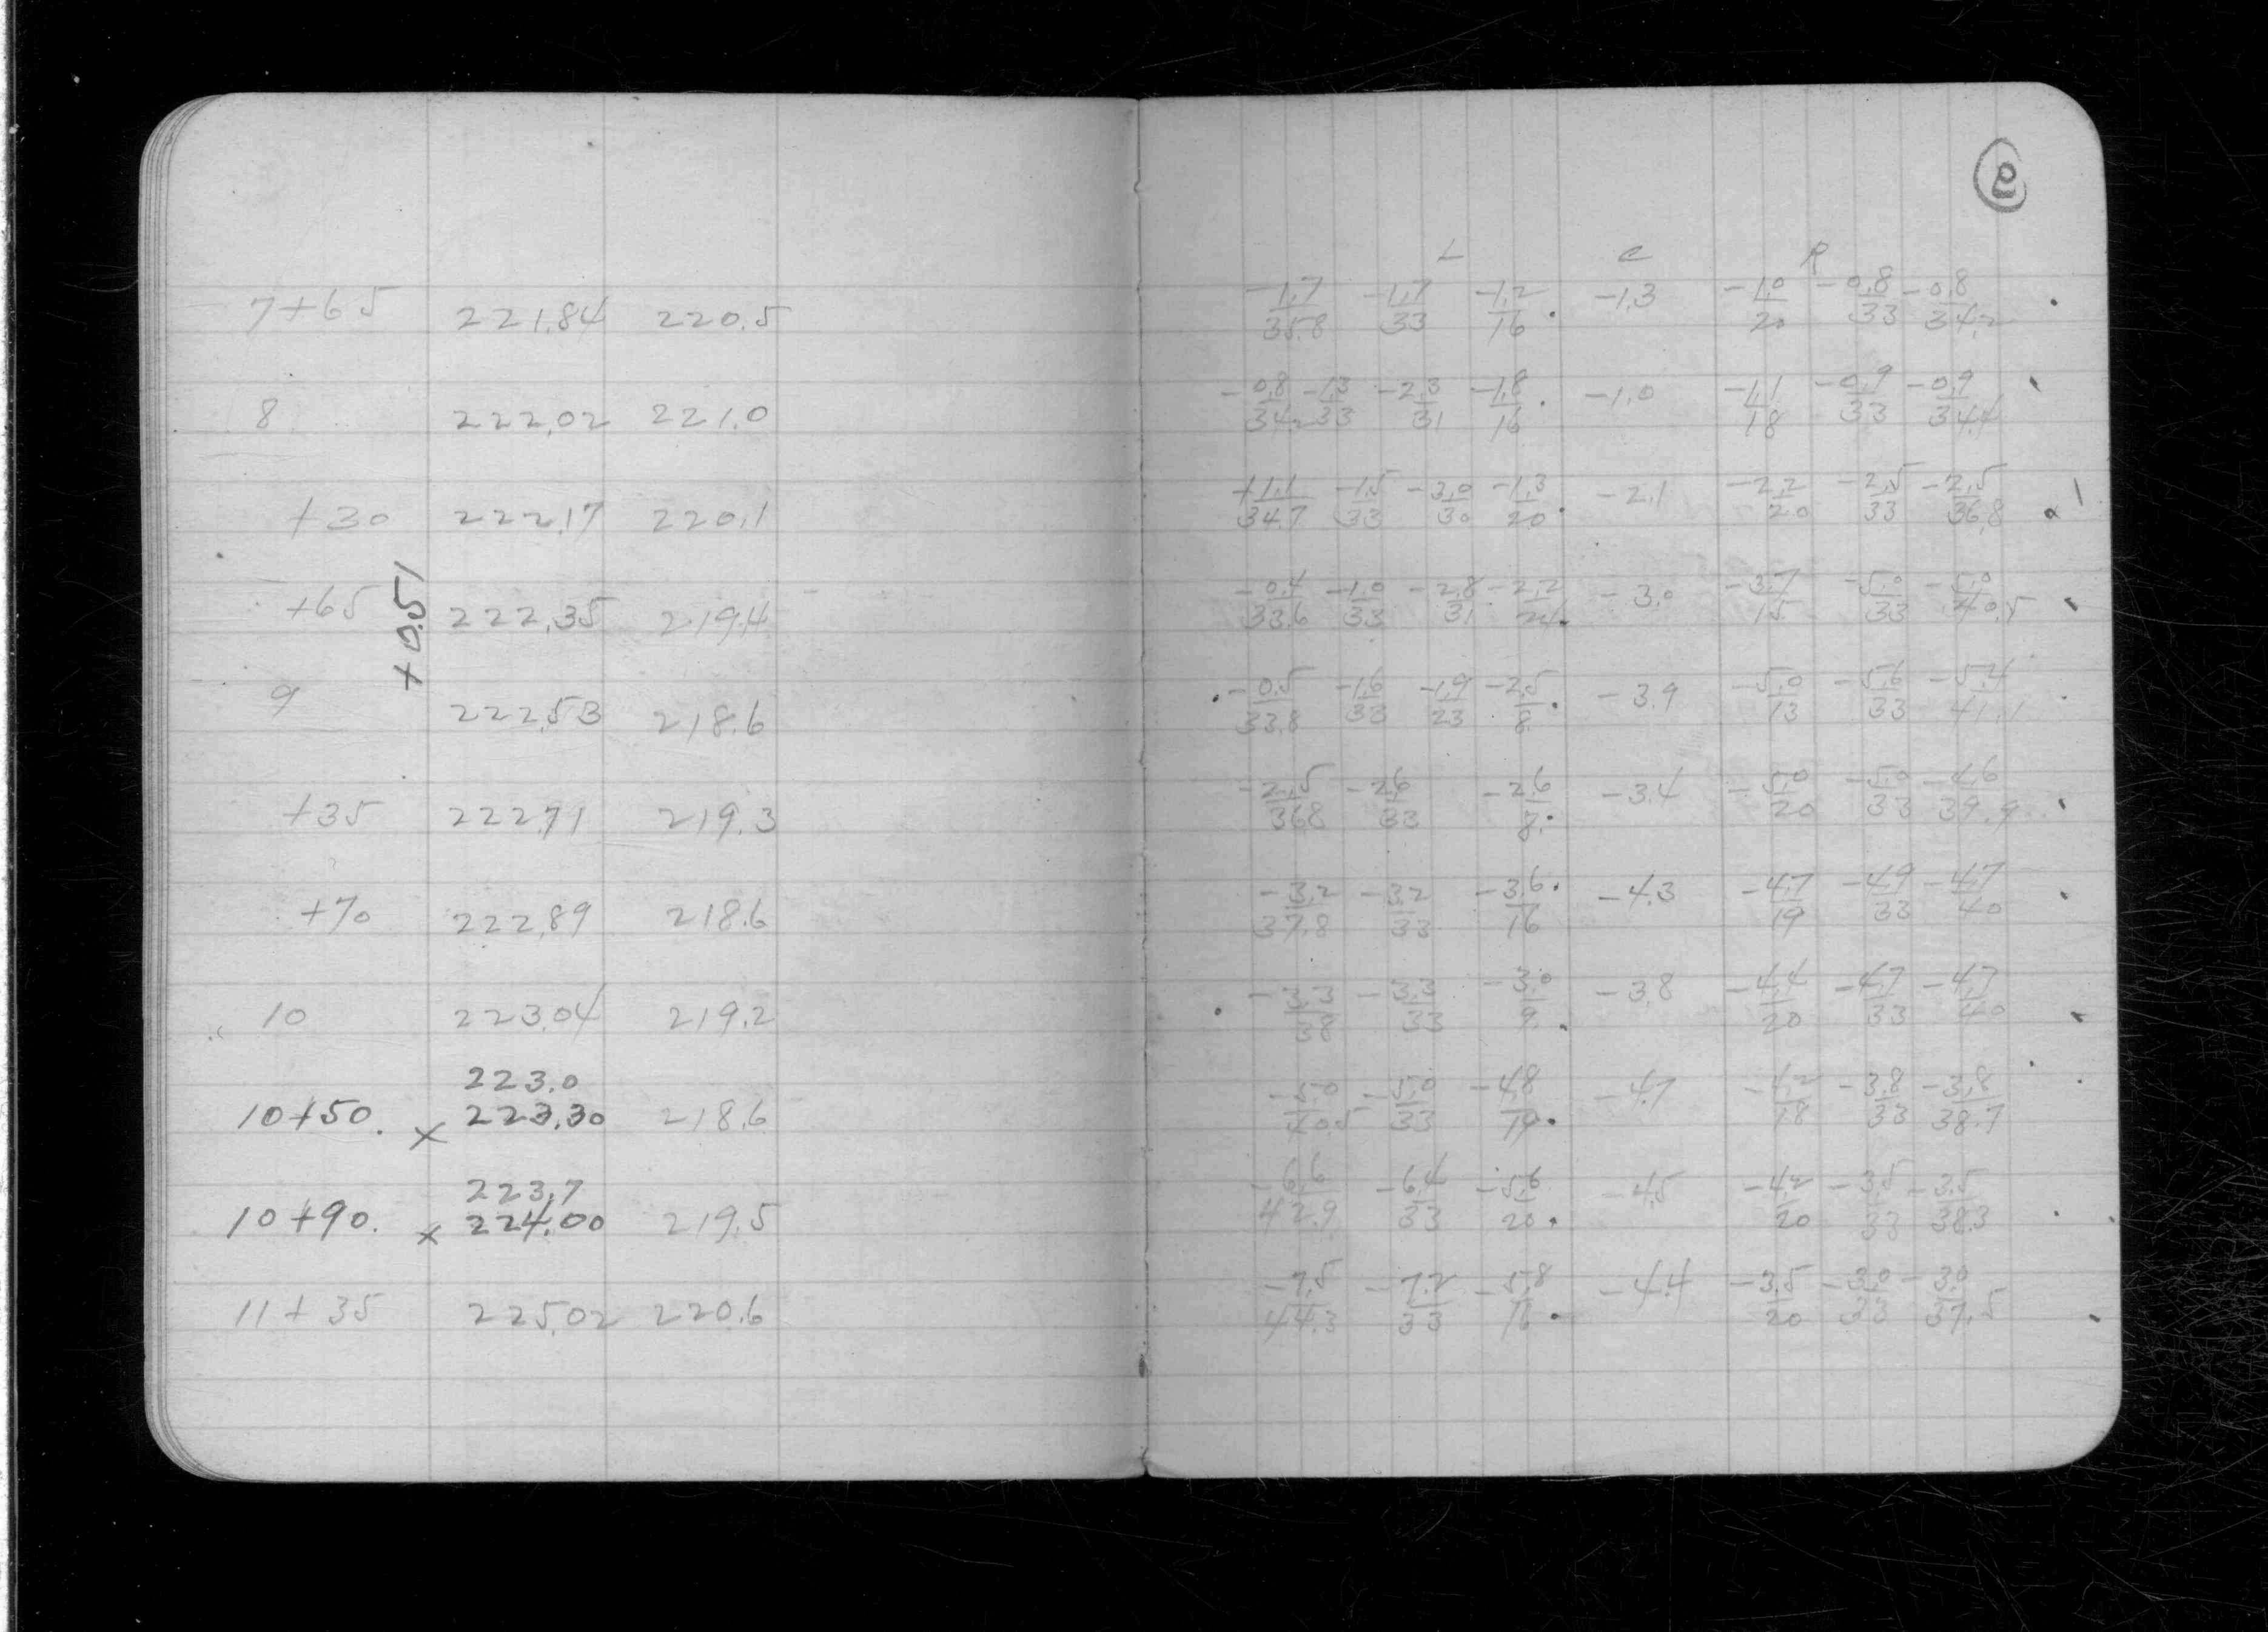 7+65 221.84 220.5
8 222.02 221.0
+30 222.17 220.1
+0.51
+65 222.35 219.4
9 222.53 218.6
+35 222.71 219.3
+70 222.89 218.6
10 223.04 219.2
223.0
10+50. x 223.30 218.6
223.7
10+90. x 224.00 219.5
11+35 225.02 220.6
L C R
-1.7 -1.7 -1.2 -1.3 -1.0 -0.8 -0.8
35.8 33 16 20 33 34.2
-0.8 -1.3 -2.3 -1.8 -1.0 -1.1 -0.9 -0.9
34.2 33 31 16 18 33 34.4
+1.1 -1.5 -3.0 -1.3 -2.1 -2.2 -2.5 -2.5
34.7 33 30 20 20 33 36.8
-0.4 -1.0 -2.8 -2.2 -3.0 -3.7 -5.0 -5.0
33.6 33 31 15 33 40.5
-0.5 -1.6 -1.9 -2.5 -3.9 -5.0 -5.6 -5.4
33.8 33 23 8 13 33 41.1
-2.5 -2.6 -2.6 -3.4 -5.0 -5.0 -4.6
36.8 33 8 20 33 39.9
-3.2 -3.2 -3.6 -4.3 -4.7 -4.9 -4.7
37.8 33 16 19 33 40
-3.3 -3.3 -3.0 -3.8 -4.4 -4.7 -4.7
38 33 9 20 33 40
-5.0 -5.0 -4.8 -4.7 -4.2 -3.8 -3.8
40.5 33 19 18 33 38.7
-6.6 -6.4 -5.6 -4.5 -4.2 -3.5 -3.5
42.9 33 20 20 33 38.3
-7.5 -7.2 -5.8 -4.4 -3.5 -3.0 -3.0
44.3 33 16 20 33 37.5